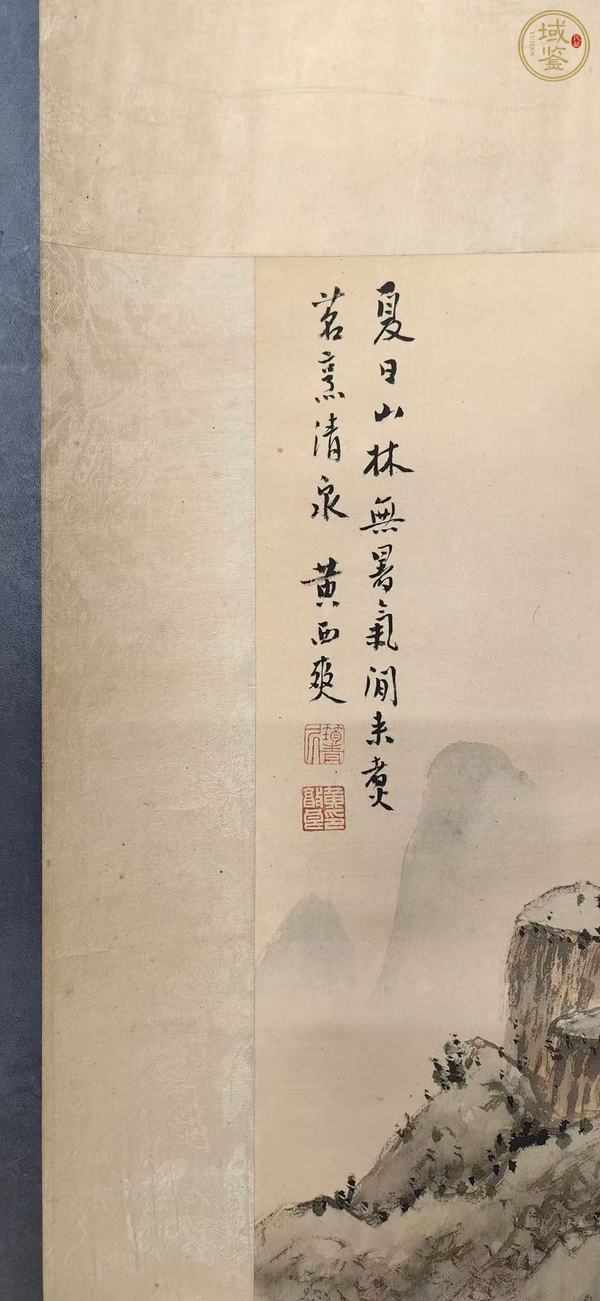 夏日山林無暑氣閒来煮
茗烹清泉 黄西爽
域鉴
YUJIAN